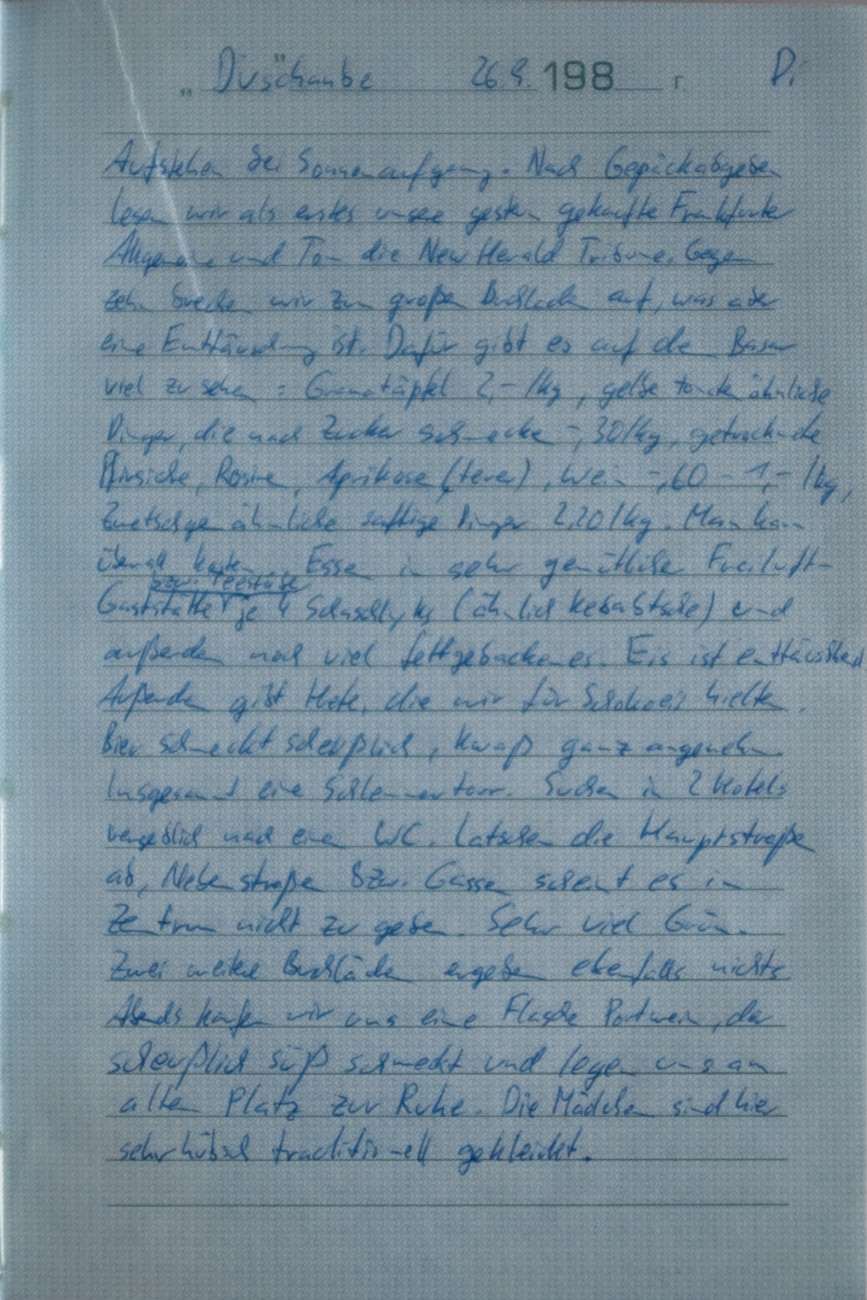 „Duschanbe“ 26.9. 198 г. Di
Aufstehen bei Sonnenaufgang. Nach Gepäckabgeben
lesen wir als erstes unsere gestern gekaufte Frankfurter
Allgemeine und Tom die New Herald Tribune. Gegen
zehn brechen wir zum großen Buchladen auf, was aber
eine Enttäuschung ist. Dafür gibt es auf dem Basar
viel zu sehen: Granatäpfel 2,-/kg, gelbe tomatenähnliche
Dinger, die nach Zucker schmecken -,30/kg, getrocknete
Pfirsiche, Rosinen, Aprikosen (teuer), Wein -,60 - 1,-/kg,
Zwetschgenähnliche saftige Dinger 2,20/kg. Man kann
überall kosten. Essen in sehr gemütlicher Freiluft-
Gaststätte bzw. Teestube je 4 Schaschlyks (ähnlich Kebabtsche) und
außerdem noch viel fettgebackenes. Eis ist enttäuschend
Außerdem gibt Hefe, die wir für Schokoeis hielten.
Bier schmeckt scheußlich, Kwaß ganz angenehm.
Insgesamt eine Schlemmertour. Suchen in 2 Hotels
vergeblich nach einem WC. Latschen die Hauptstraße
ab, Nebenstraßen bzw. Gassen scheint es im
Zentrum nicht zu geben. Sehr viel Grün.
Zwei weitere Buchläden ergeben ebenfalls nichts
Abends kaufen wir uns eine Flasche Portwein, der
scheußlich süß schmeckt und legen uns am
alten Platz zur Ruhe. Die Mädchen sind hier
sehr hübsch traditionell gekleidet.